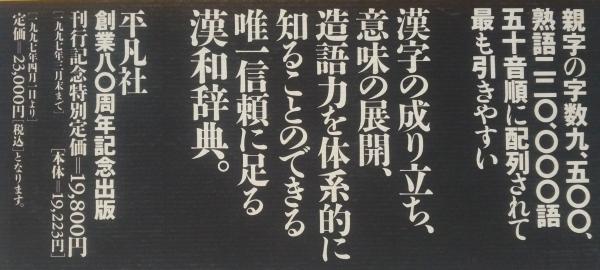 親字の字数九、五〇〇、
熟語一二〇、〇〇〇語
五十音順に配列されて
最も引きやすい
漢字の成り立ち、
意味の展開、
造語力を体系的に
知ることのできる
唯一信頼に足る
漢和辞典。
平凡社
創業八〇周年記念出版
刊行記念特別定価=19,800円
[一九九七年三月末まで] [本体=19,223円]
[一九九七年四月一日より]
定価=23,000円[税込]となります。